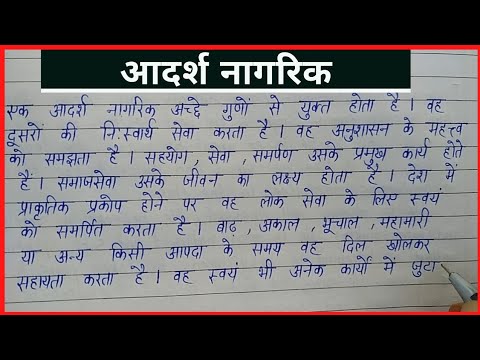 आदर्श नागरिक
एक आदर्श नागरिक अच्छे गुणों से युक्त होता है । वह
दूसरों की निःस्वार्थ सेवा करता है । वह अनुशासन के महत्त्व
को समझता है । सहयोग , सेवा , समर्पण उसके प्रमुख कार्य होते
हैं । समाजसेवा उसके जीवन का लक्ष्य होता है । देश में
प्राकृतिक प्रकोप होने पर वह लोक सेवा के लिए स्वयं
को समर्पित करता है । बाढ़ , अकाल , भूचाल , महामारी
या अन्य किसी आपदा के समय वह दिल खोलकर
सहायता करता है । वह स्वयं भी अनेक कार्यों में जुटा